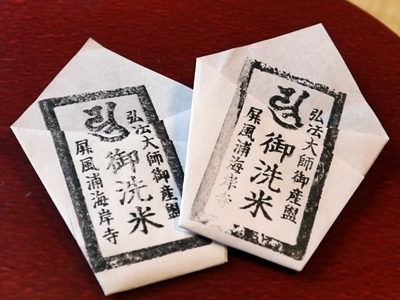 弘法大師御産盥
御洗米
屏風浦海岸寺
弘法大師御産盥
御洗米
屏風浦海岸寺